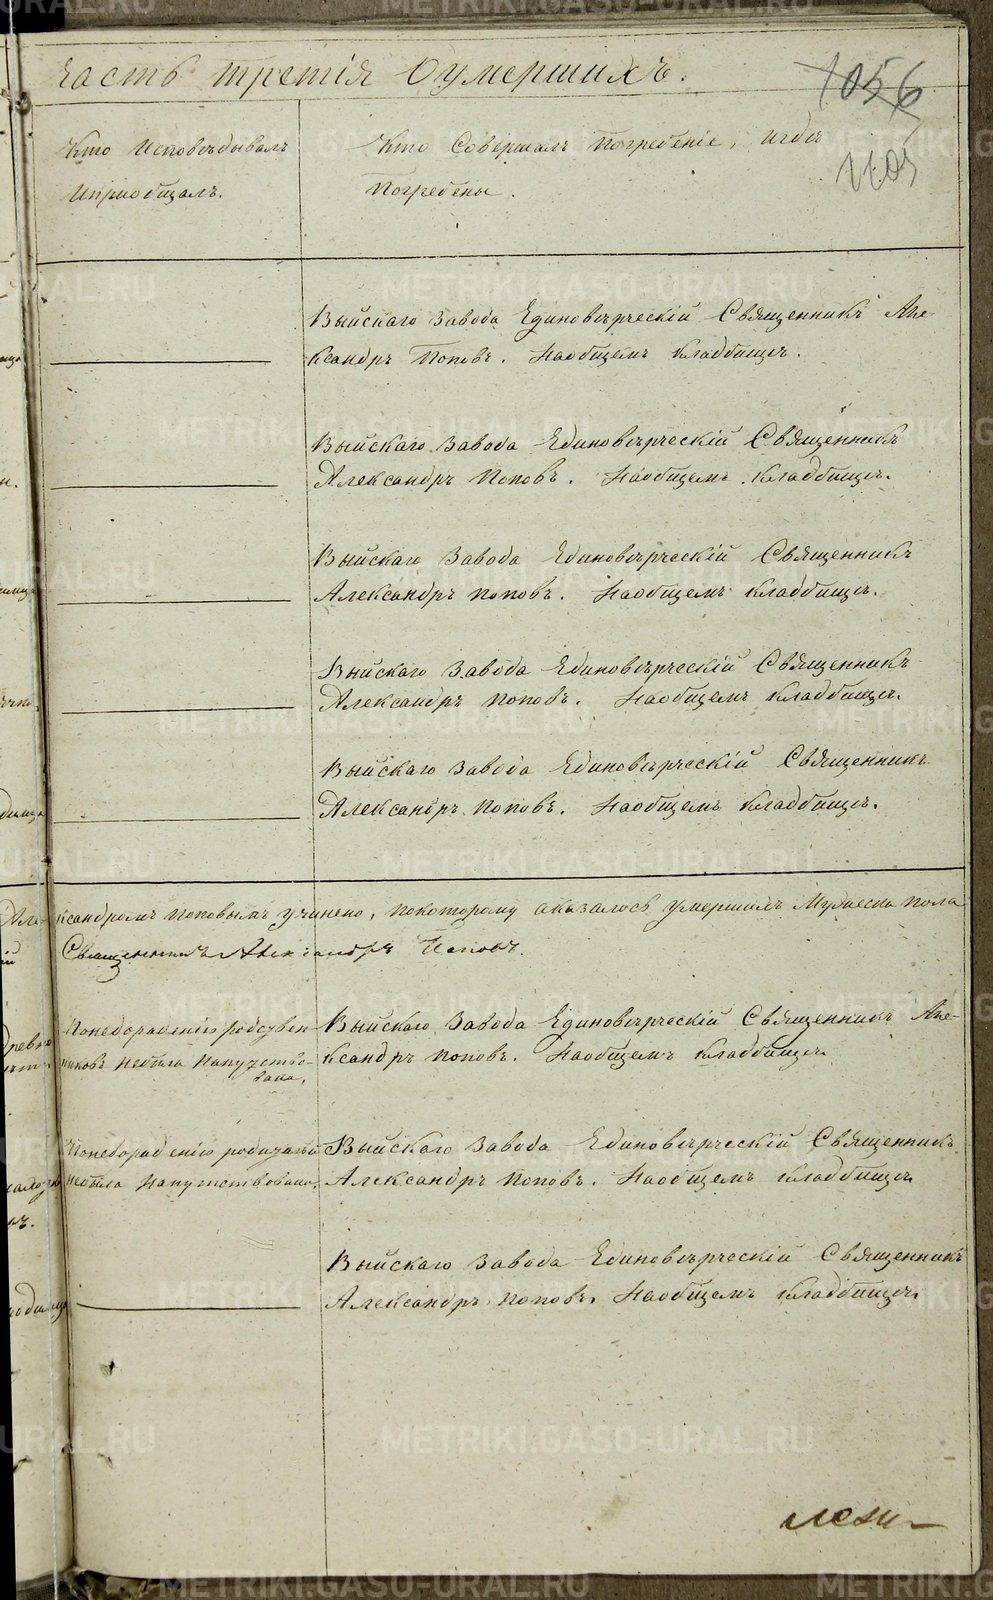 Часть третія Оумершихъ.
1056
1105
Кто Исповѣдывалъ
Ипріобщалъ.
Кто Совершалъ Погребеніе, игдѣ
Погребены.
Выйскаго Завода Единовѣрческій Священникъ Але-
ксандръ Поповъ. Наобщемъ Кладбищѣ.
Выйскаго Завода Единовѣрческій Священникъ
Александръ Поповъ. Наобщемъ Кладбищѣ.
Выйскаго Завода Единовѣрческій Священникъ
Александръ Поповъ. Наобщемъ Кладбищѣ.
Выйскаго Завода Единовѣрческій Священникъ
Александръ Поповъ. Наобщемъ Кладбищѣ.
Выйскаго Завода Единовѣрческій Священникъ
Александръ Поповъ. Наобщемъ Кладбищѣ.
Але-ксандромъ Поповымъ учинено, покоторому аказалось умершихъ Мужеска пола
Священникъ Александръ Поповъ.
Понедораденію родствен-
никовъ небыла Напутство-
вана.
Выйскаго Завода Единовѣрческій Священникъ Але-
ксандръ Поповъ. Наобщемъ Кладбищѣ.
Понеборадѣнію родителей
небыла Напутствована.
Выйскаго Завода Единовѣрческій Священникъ
Александръ Поповъ. Наобщемъ Кладбищѣ.
Выйскаго Завода Единовѣрческій Священникъ
Александръ Поповъ. Наобщемъ Кладбищѣ.
METRIKI.GASO-URAL.RU